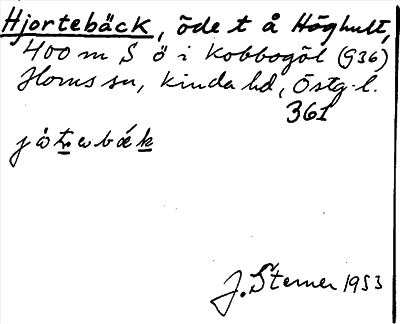 Hjortebäck, öde t å Höghult,
400 m S ö i Kobbogöl (936)
Horns sn, Kinda hd, Östg. l.
361
J. Sterner 1953